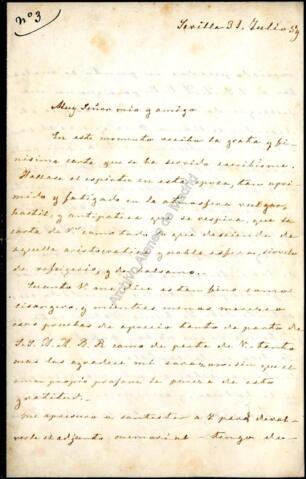 nº 3
Sevilla 31. Julio 59
Muy Señor mio y amigo
En este momento recibo la grata y fi-
nisima carta que se ha servido escribirme.
Hallase el espiritu en esta epoca, tan opri-
mido y fatigado en la atmosfera vulgar,
hostil, y antipatica que se respira, que la
carta de V. como todo lo que desciende de
aquella aristocratica y noble esfera, sirve
de refrigerio, y de balsamo.
Cuanto V. me dice es tan fino como
lisongero, y mientras menos merezco
esas pruebas de aprecio tanto de parte de
S.S. A.A. R.R. como de parte de V. tanto
mas las agradece mi corazon sin que el
amor propio profane la pureza de esta
gratitud.
Me apresuro a contestar a V. para devol-
verle el adjunto memorial - tengo de-
Archivo Ateneo de Madrid